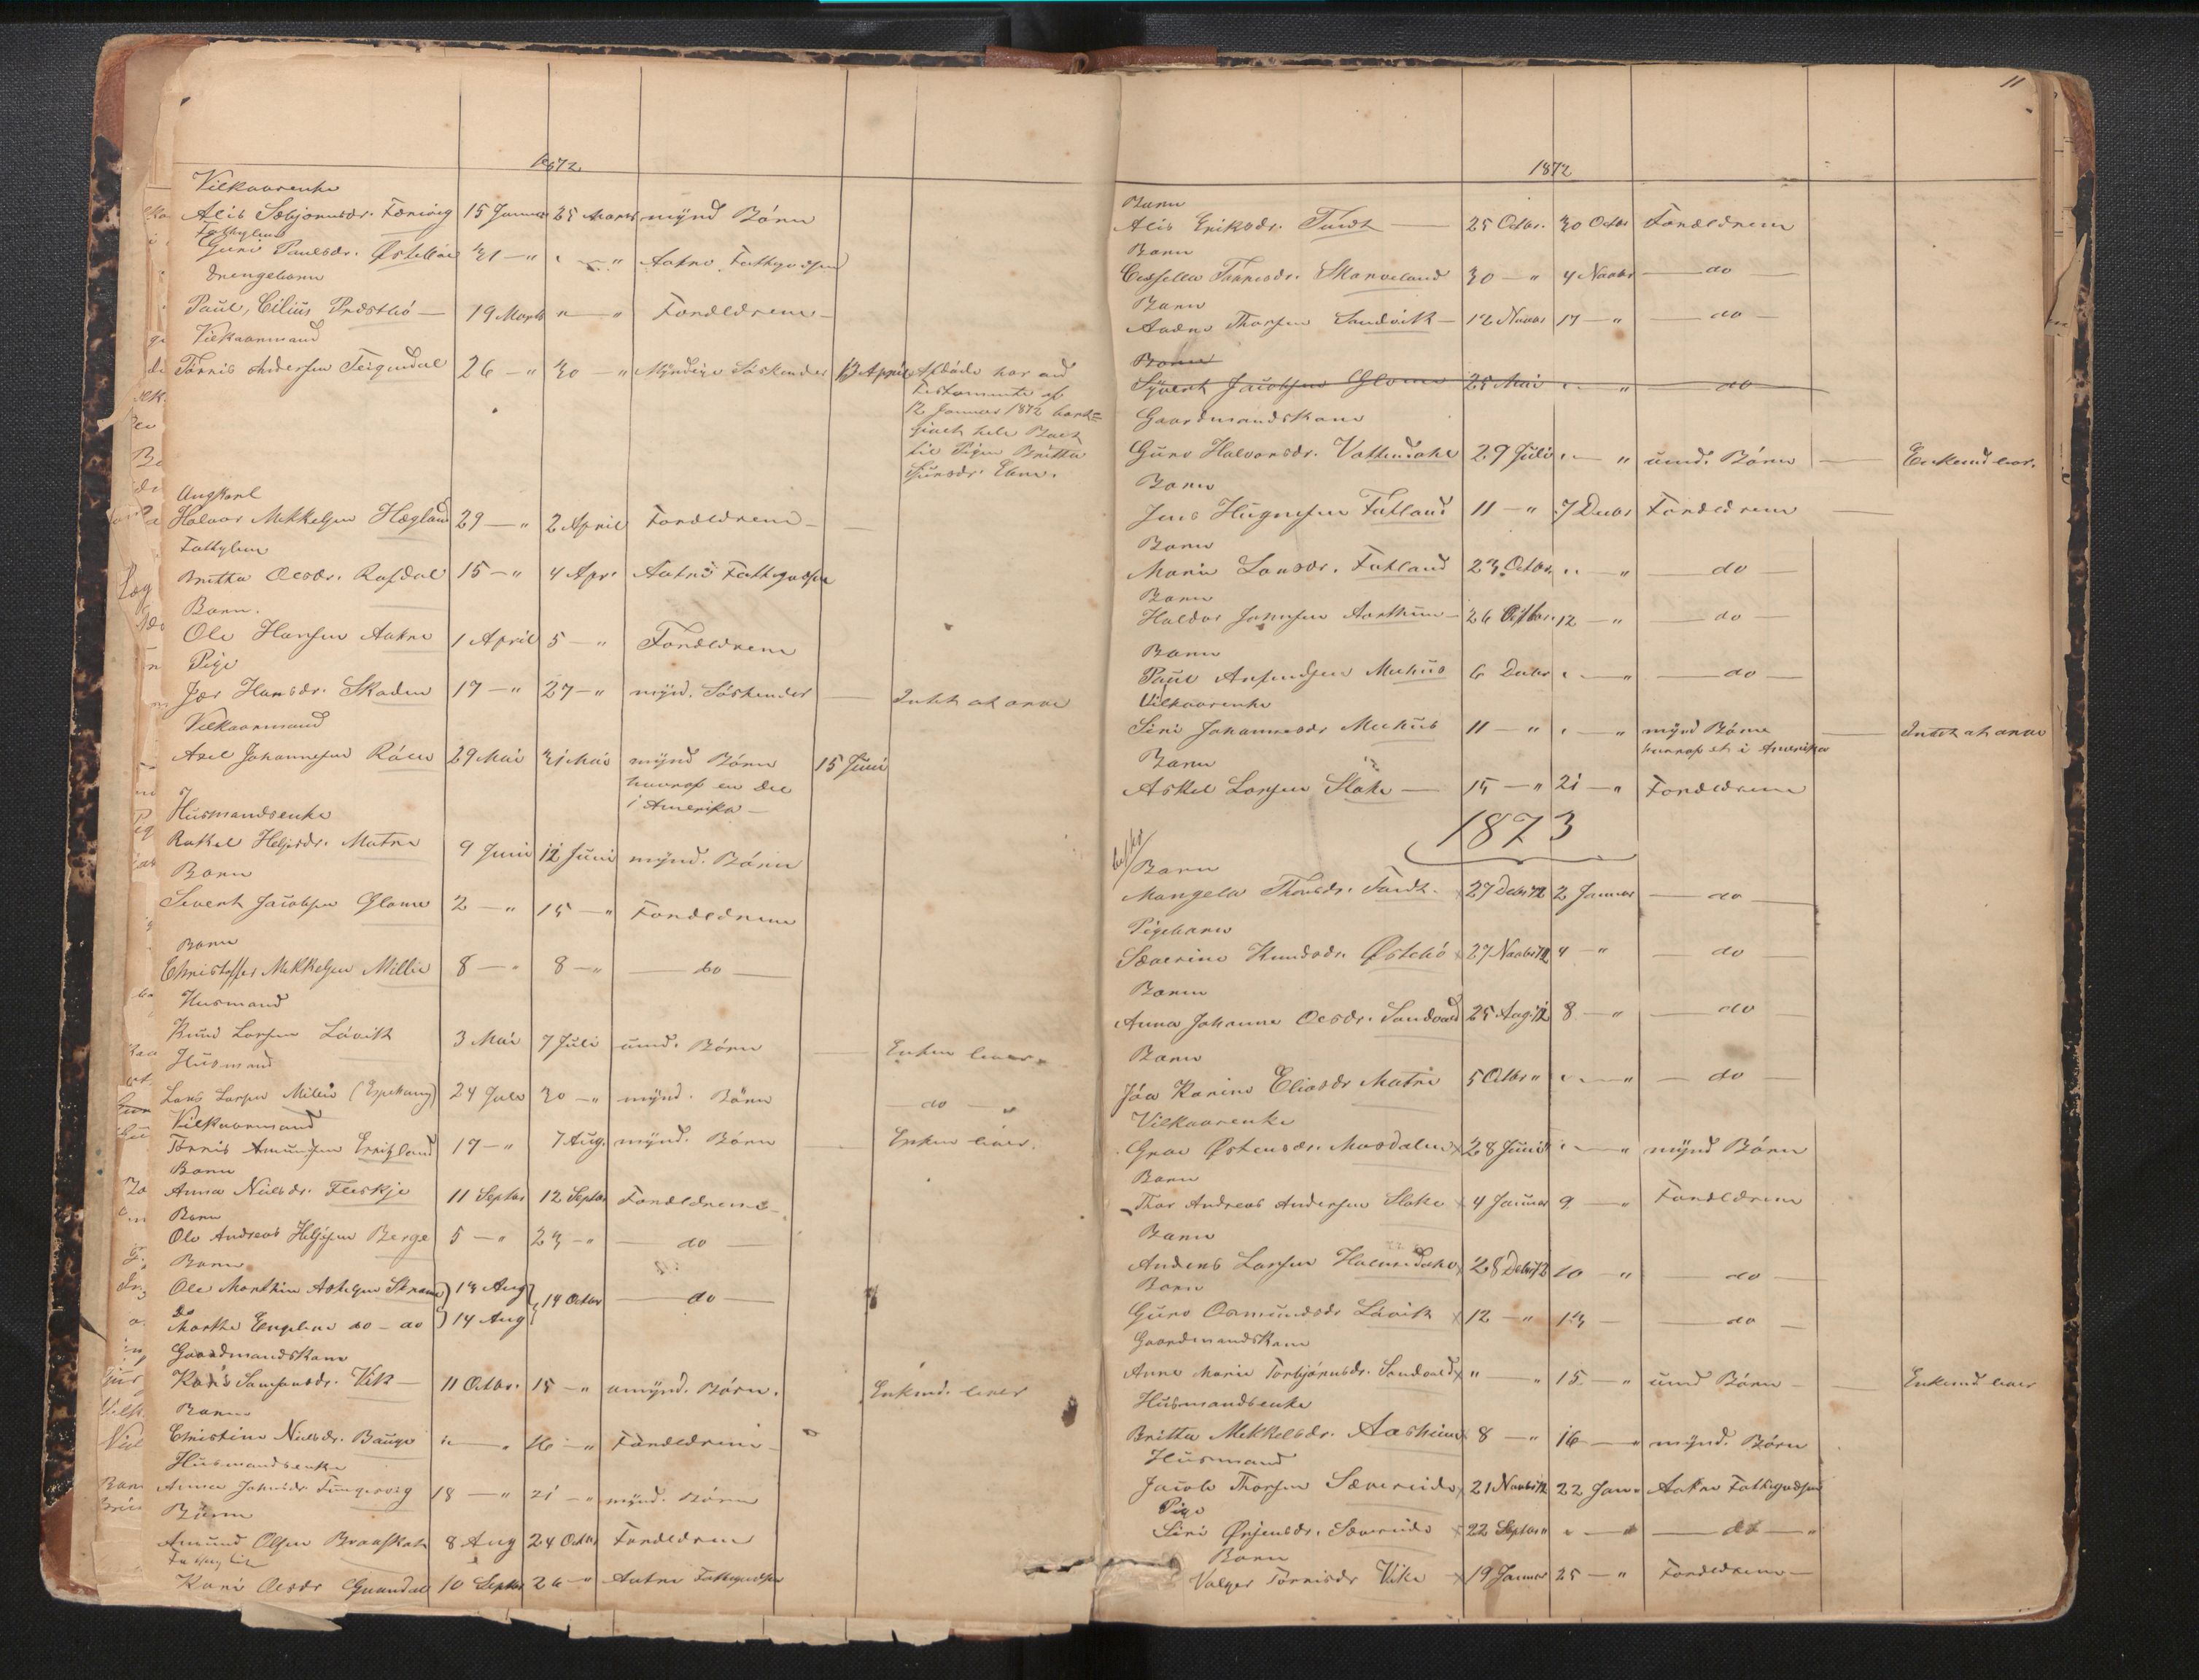 1872
Vilkaarenke
Alis Sæbjørnsdr. Færivig 15 Januar 25 Marts mÿnd Börn
Fattiglem
Guri Paulsdr. Østebøe 31 — " " — " Aakre Fattigvæsen
Drengebarn
Paul, Cilius Præstbö — 19 Marts " — " Forældrene —
Vilkaarmand
Tørris Andersen Teigendal 26 — " 30 — " Mÿndige Söskender 13 April Afdöde har ved
Testamente af
12 Januar 1872 bort=
givet hele Boet
til Pigen Britta
Siursdr. Ebne.
Ungkarl
Halvor Mikkelsen Hægland 29 — " 2 April Forældrene —
Fattiglem
Britta Olsdr. Rafdal 15 — " 4 Apr. Aakre Fattigvæsen
Barn.
Ole Hansen Aakre 1 April 5 — " Forældrene
Pige
Jær Hansdr. Skaden 17 — " 27 — " mÿnd. Söskender — Intet at arve
Vilkaarmand
Axel Johannesen Röen 29 Mai 31 Mai mÿnd Börn 15 Juni
hvoraf en del
i Amerika —
Husmandsenke
Rakel Heljesdr. Matre 9 Juni 12 Juni mÿnd. Börn
Barn
Sivert Jacobsen Glome 2 — " 15 — " Forældrene
Barn
Christoffer Mikkelsen Millie 8 — " 8 — " — do —
Husmand
Knud Larsen Lövik 3 Mai 7 Juli umÿnd. Börn — Enken lever.
Husmand
Lars Larsen Millie (Espehaug) 24 Juli 30 — " mÿnd. Börn — do — "
Vilkaarmand
Tørris Amundsen Erritzland 17 — " 7 Aug. mÿnd. Börn — Enken lever.
Barn
Anna Nielsdr. Fleskje 11 Septbr 12 Septbr Forældrene —
Barn
Ole Andreas Heljesen Berge 5 — " 23 — " — do —
Barn
Ole Marthin Askelsen Strømme 13 Aug 14 Octbr — do —
do
Marthe Engeline do — do 14 Aug
Gaardmandskone
Kari Samsonsdr. Vik — 11 Octbr. 15 — " umÿnd. Börn. Enkemd. lever
Barn
Christine Nielsdr. Bauge " — " 16 — " Forældrene —
Husmandsenke
Anna Johnsdr. Tungesvig 18 — " 21 — " mÿnd. Börn
Barn
Amund Olsen Braaskat 8 Aug 24 Octbr Forældrene
Fattiglem
Kari Olsdr Grøndal 10 Septbr 26 — " Aakre Fattigvæsen
11
1872
Barn
Alis Eriksdr. Tindt — 25 Octbr. 30 Octbr Forældrene
Barn
Cecsella Tørresdr. Skarveland 30 — " 4 Novbr — do —
Barn
Andreas Thorsen Sandvik — 12 Novbr 17 — " — do —
Barn
Syvert Jacobsen Glome 25 Mai " — " — do
Gaardmandskone
Guro Halvorsdr. Vattendahl 29 Juli " — " umd. Börn — Enkemd lever.
Barn
Jens Hugnesen Fatland 11 — " 7 Decbr Forældrene —
Barn
Marie Larsdr. Fatland 23 Octbr. " — " — do —
Barn
Haldor Johnsen Aarthun — 26 Octbr. 12 — " — do —
Barn
Paul Anfindsen Mechus 6 Decbr " — " — do —
Vilkaarenke
Siri Johannesdr Mechus 11 — " " — " mÿnd Börn — Intet at arve
hvoraf et i Amerika
Barn
Askel Larsen Stoke — 15 — " 21 — " Forældrene
1873
Barn
Mangela Thorsdr. Tindt. 27 Decbr 72 2 Januar — do —
Pigebarn
Severine Knudsdr. Østebö 27 Novbr 72 4 " — do —
Barn
Anna Johanne Olsdr. Sandvold 25 Aug. 72 8 — " — do
Barn
Jöa Karine Eliasdr Matre 5 Octbr " " — " — do —
Vilkaarenke
Groe Østensdr. Mosdalen 28 Juni " " — " mÿnd Börn
Barn
Thor Andreas Andersen Stoke 4 Januar 9 — " Forældrene
Barn
Anders Larsen Holmedahl 28 Decbr 72 10 — " — do —
Barn
Guro Osmundsdr Lövik 12 — " 13 — — do —
Gaardmandskone
Anne Marie Torbjørnsdr. Sandvold " — " 15 — " umd Börn — — Enkemd lever
Husmandsenke
Britta Mikkelsdr. Aasheim 8 — " 16 — " mÿnd. Börn
Husmand
Jacob Thorsen Sævereide 21 Novbr 72 22 Jan. Aakre Fattigvæsen
Pige
Siri Ørjensdr. Sævereide 22 Septbr " " — " — do — "
Barn
Valger Tørrisdr Vike — 19 Januar 25 — " Forældrene —